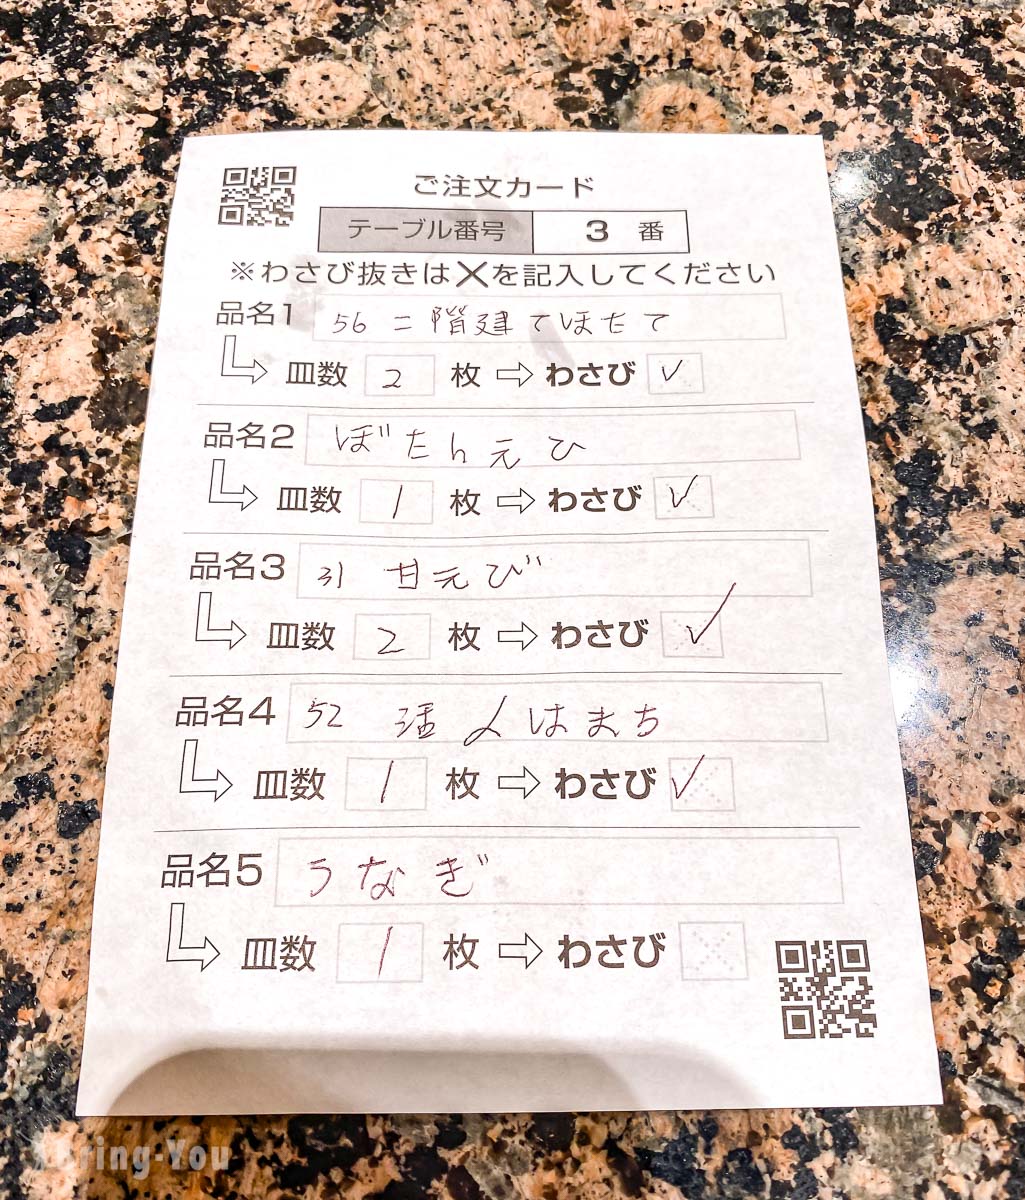 ご注文カード
テーブル番号 3 番
※わさび抜きは✕を記入してください
品名1 56 二階建てほたて
皿数 2 枚 ⇨ わさび ✓
品名2 ぼたんえひ
皿数 1 枚 ⇨ わさび ✓
品名3 31 甘えび
皿数 2 枚 ⇨ わさび ✓
品名4 52 活〆はまち
皿数 1 枚 ⇨ わさび ✓
品名5 うなぎ
皿数 1 枚 ⇨ わさび
Bring-You